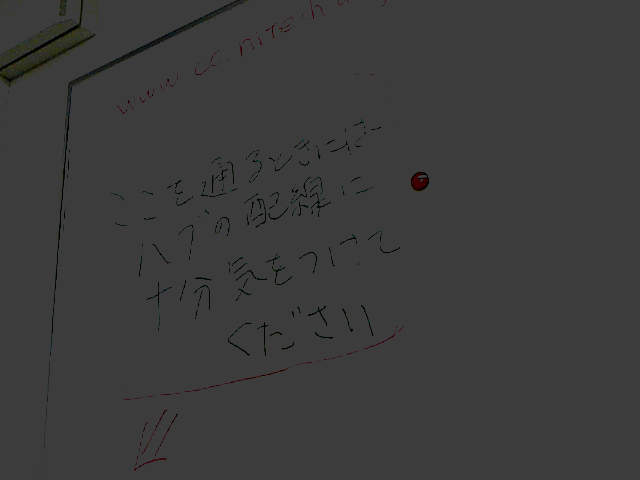 www.cc.nitech.a
ここを通るときには
ハブの配線に
十分気をつけて
ください